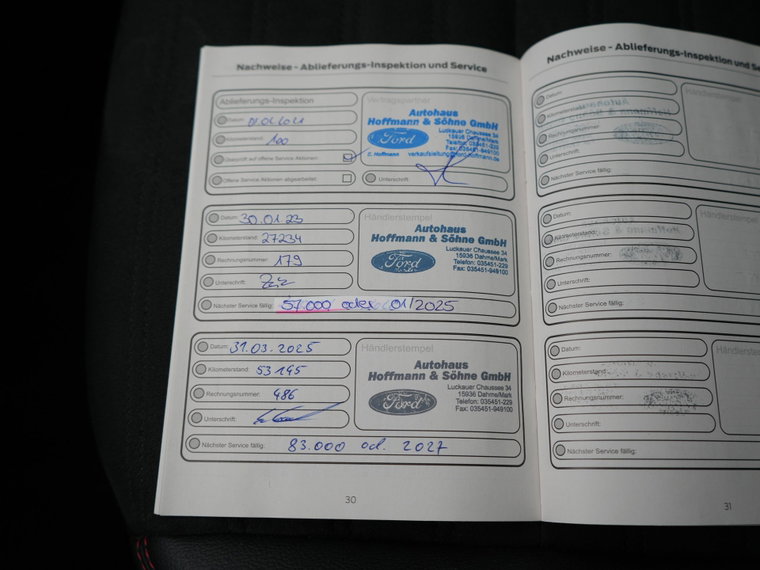 Nachweise - Ablieferungs-Inspektion und Service
Ablieferungs-Inspektion
Vertragspartner
Datum:
Kilometerstand: 100
Überprüft auf offene Service Aktionen:
Offene Service Aktionen abgearbeitet:
Autohaus
Hoffmann & Söhne GmbH
Luckauer Chaussee 34
15936 Dahme/Mark
Telefon: 035451-229
Fax: 035451-949100
Ford
Unterschrift:
Datum: 30.01.23
Kilometerstand: 27234
Rechnungsnummer: 179
Unterschrift:
Händlerstempel
Autohaus
Hoffmann & Söhne GmbH
Luckauer Chaussee 34
15936 Dahme/Mark
Telefon: 035451-229
Fax: 035451-949100
Ford
Nächster Service fällig: 57.000 oder 01/2025
Datum: 31.03.2025
Kilometerstand: 53145
Rechnungsnummer: 486
Unterschrift:
Händlerstempel
Autohaus
Hoffmann & Söhne GmbH
Luckauer Chaussee 34
15936 Dahme/Mark
Telefon: 035451-229
Fax: 035451-949100
Ford
Nächster Service fällig: 83.000 od. 2027
30
Nachweise - Ablieferungs-Inspektion und Se
Datum:
Kilometerstand:
Rechnungsnummer:
Unterschrift:
Nächster Service fällig:
Händlerstempel
Datum:
Kilometerstand:
Rechnungsnummer:
Unterschrift:
Nächster Service fällig:
Händlerst
Datum:
Kilometerstand:
Rechnungsnummer:
Unterschrift:
Nächster Service fällig:
Händlers
31